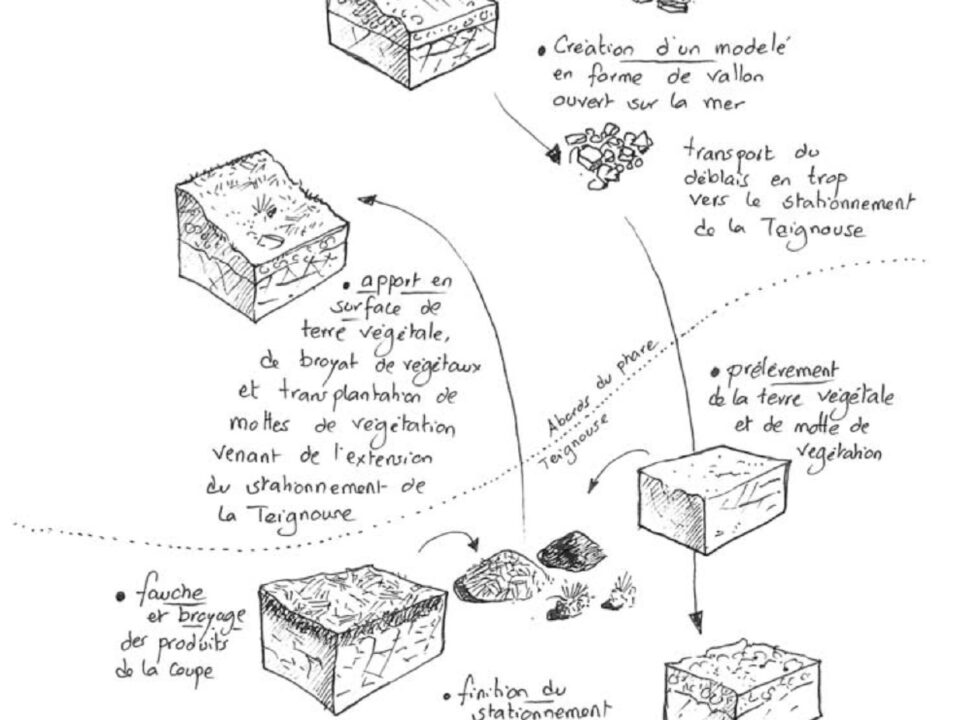 • Création d'un modelé
en forme de vallon
ouvert sur la mer
transport du
déblais en trop
vers le stationnement
de la Teignouse
• apport en
surface de
terre végétale,
de broyat de végétaux
et transplantation de
mottes de végétation
venant de l'extension
du stationnement de
la Teignouse
Abords du phare
Teignouse
• prélèvement
de la terre végétale
et de motte de
végétation
• fauche
et broyage
des produits
de la coupe
• finition du
stationnement